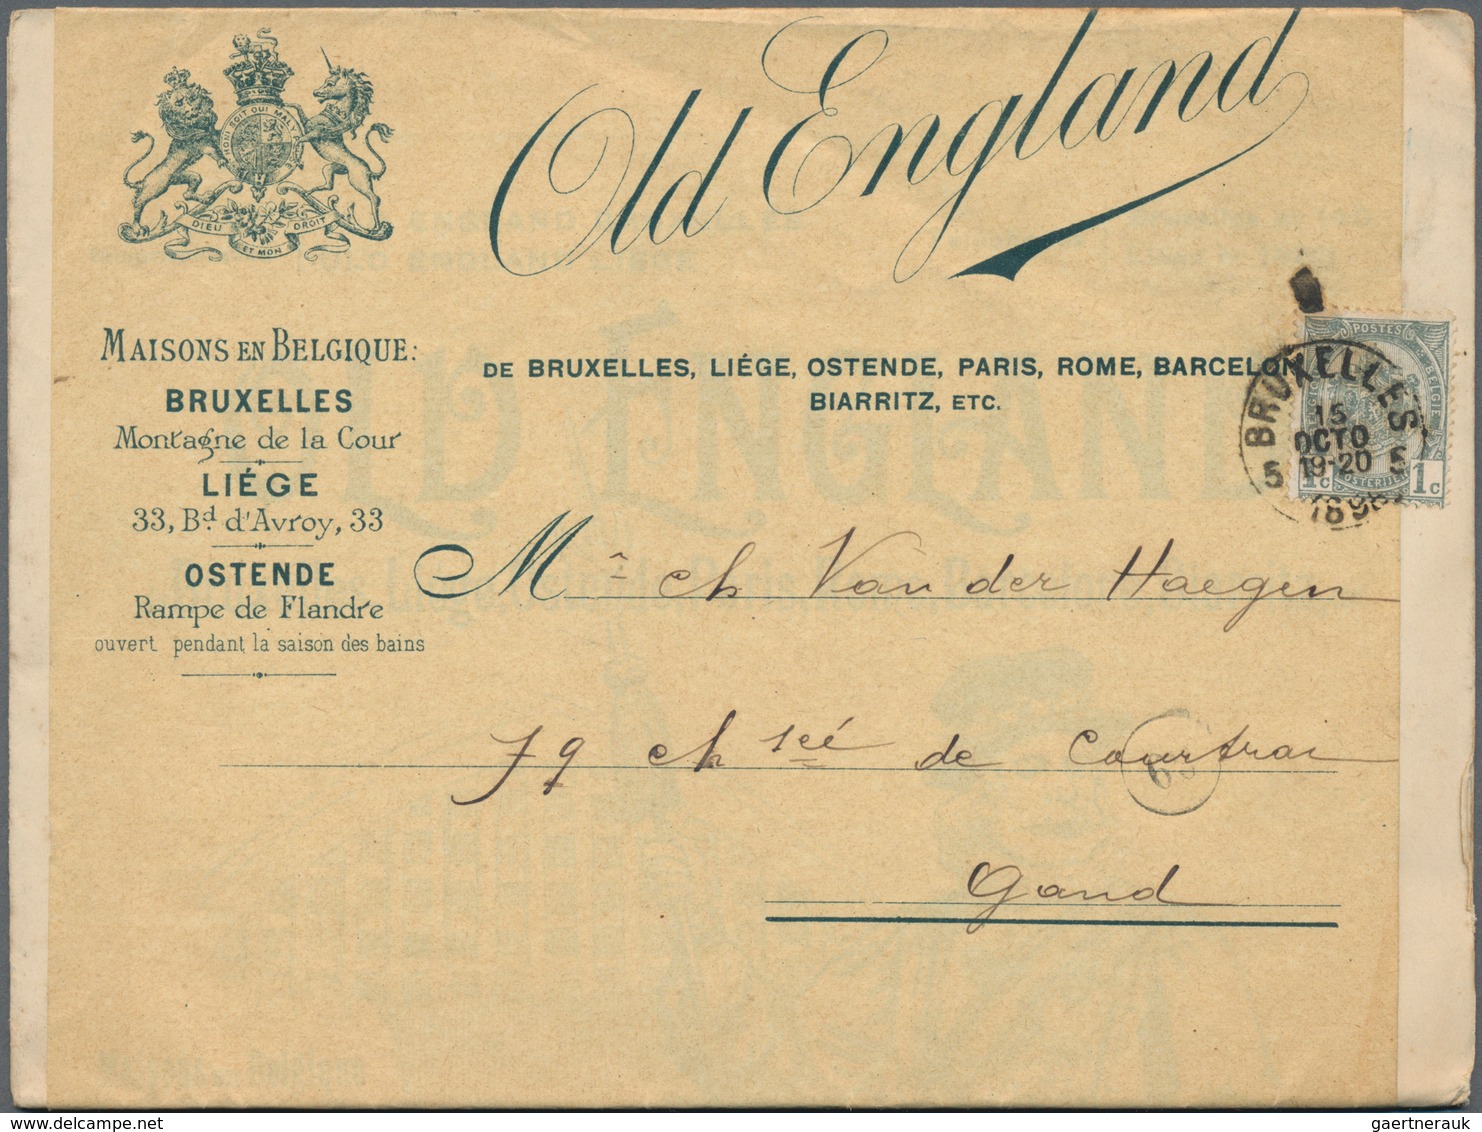 Old England
HONI SOIT QUI MAL Y
DIEU ET MON DROIT
MAISONS EN BELGIQUE:
BRUXELLES
Montagne de la Cour
LIÉGE
33, Bd d'Avroy, 33
OSTENDE
Rampe de Flandre
ouvert pendant la saison des bains
DE BRUXELLES, LIÉGE, OSTENDE, PARIS, ROME, BARCELON
BIARRITZ, ETC.
POSTES
BELGIE
1c 1c
BRUXELLES
15
OCTO
5 19-20 5
1898
Mr ch Van der Haegen
79 chscé de Courtrai
Gand
delcampe.net
gaertnerauk